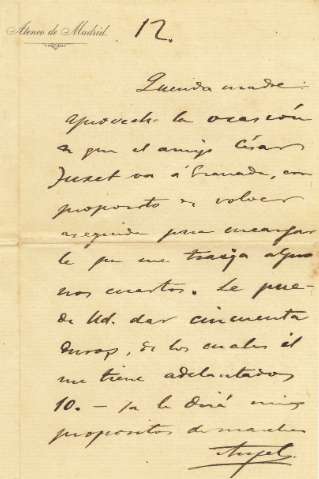 Ateneo de Madrid.
12.
Querida madre:
aprovecho la ocasión
de que el amigo César
Juset va a Granada, con
proposito de volver
enseguida para encargar
le que me traiga algu
nos cuartos. Le pue-
de Ud. dar cincuenta
duros, de los cuales él
me tiene adelantados
10. — ya le dirá mis
propositos de marcha
Angel.